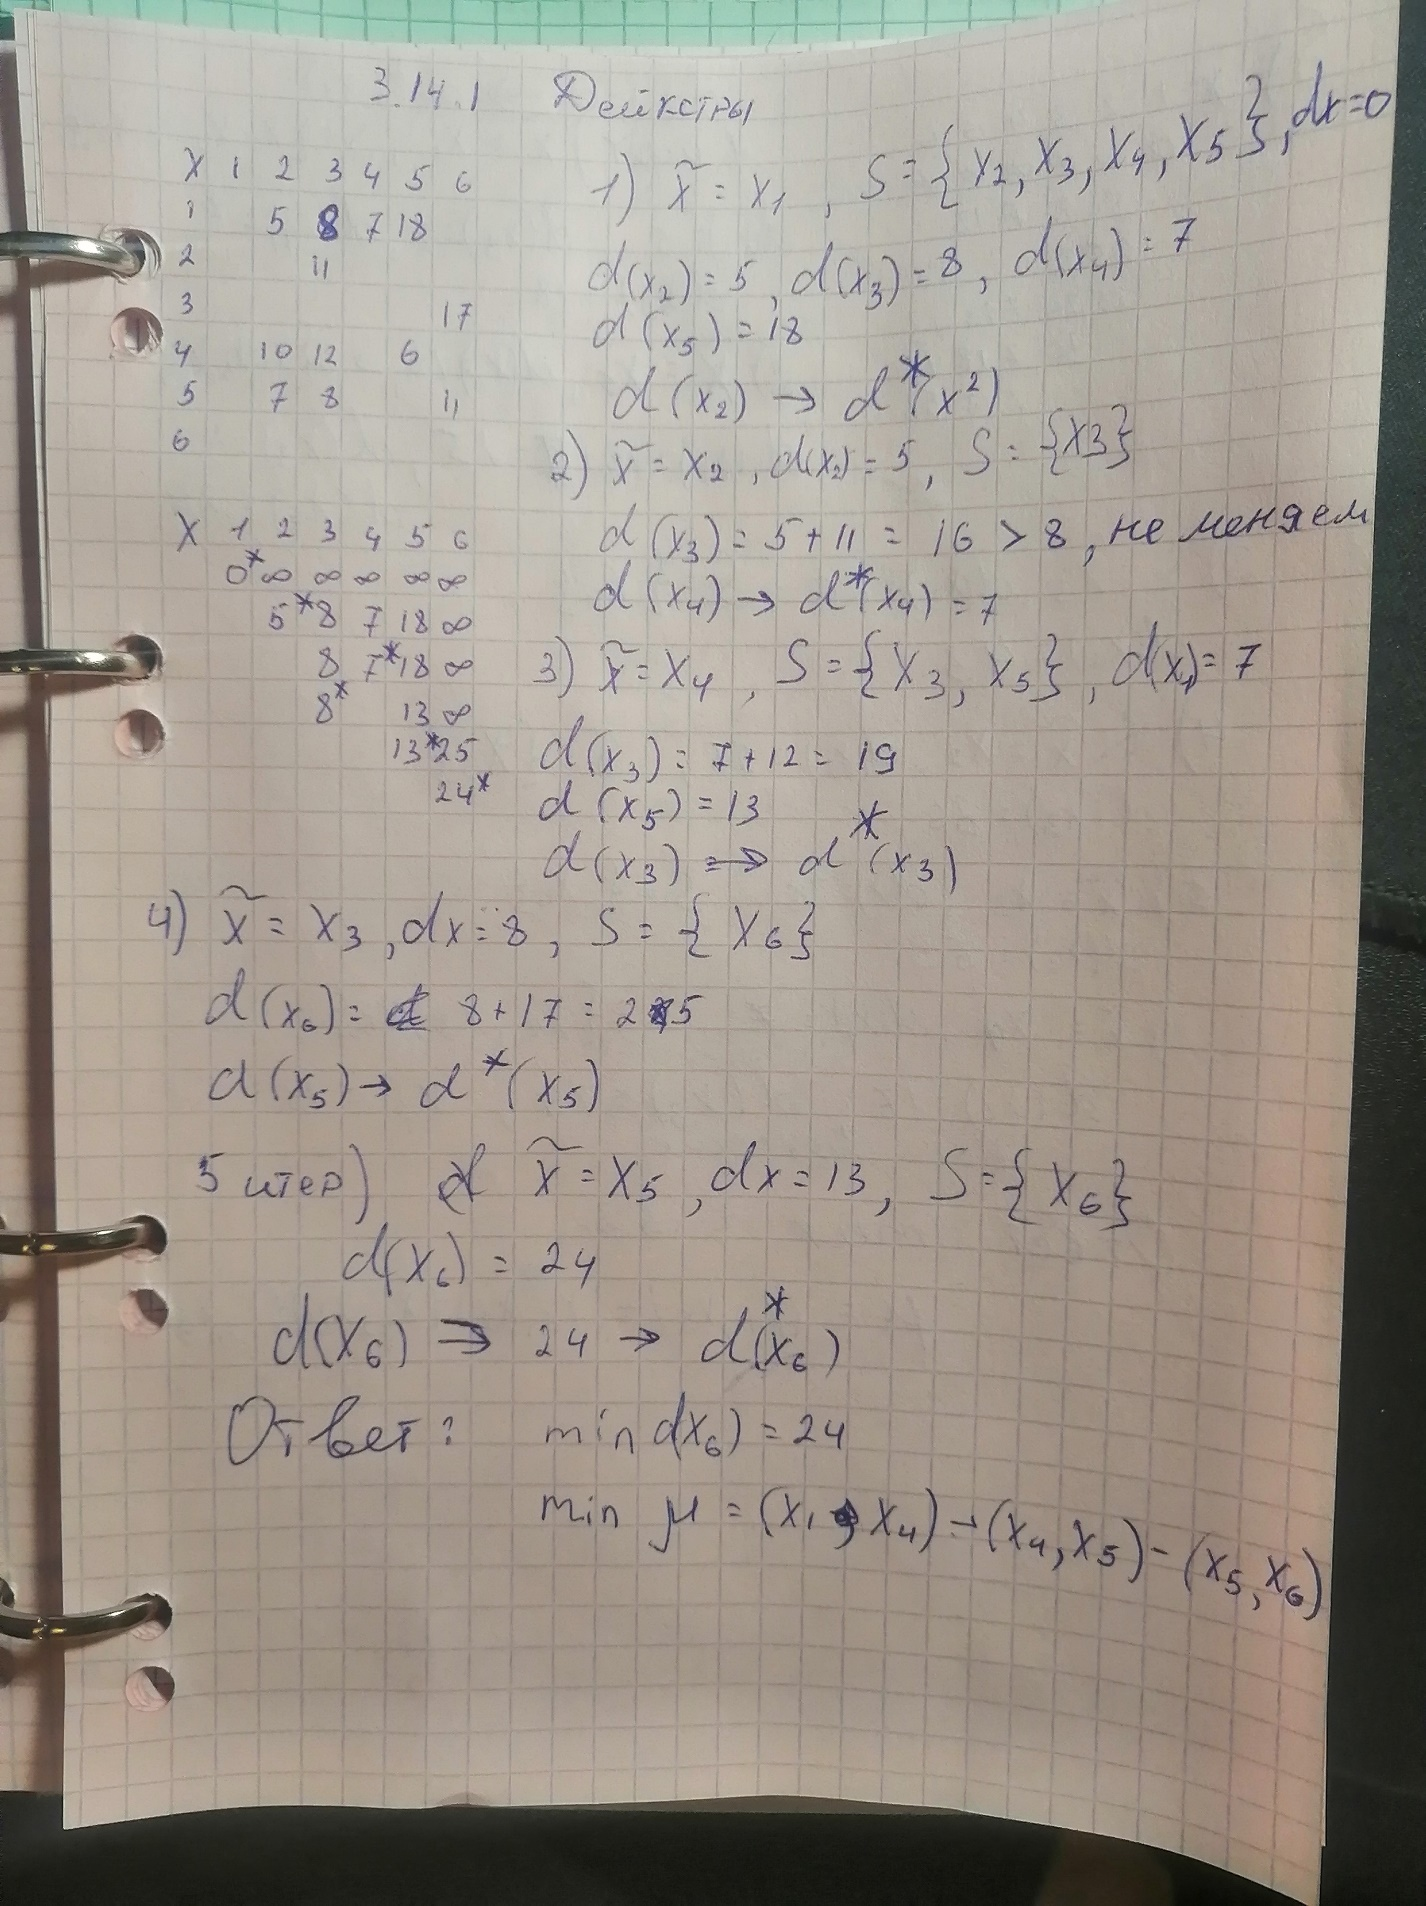 3.14.1 Дейкстры
X 1 2 3 4 5 6
1 5 8 7 18
2 11
3 17
4 10 12 6
5 7 8 11
6
X 1 2 3 4 5 6
0* ∞ ∞ ∞ ∞ ∞
5* 8 7 18 ∞
8 7* 18 ∞
8* 13 ∞
13* 25
24*
1) x̃ = x₁, S = {x₂, x₃, x₄, x₅}, dx=0
d(x₂) = 5, d(x₃) = 8, d(x₄) = 7
d(x₅) = 18
d(x₂) → d*(x²)
2) x̃ = x₂, d(x₂) = 5, S = {x3}
d(x₃) = 5+11 = 16 > 8, не меняем
d(x₄) → d*(x₄) = 7
3) x̃ = x₄, S = {x₃, x₅}, d(x₄) = 7
d(x₃) = 7+12 = 19
d(x₅) = 13
d(x₃) → d*(x₃)
4) x̃ = x₃, dx = 8, S = {x₆}
d(x₆) = 8+17 = 25
d(x₅) → d*(x₅)
5 итер) x̃ = x₅, dx = 13, S = {x₆}
d(x₆) = 24
d(x₆) → 24 → d*(x₆)
Ответ: min d(x₆) = 24
min μ = (x₁, x₄) – (x₄, x₅) – (x₅, x₆)